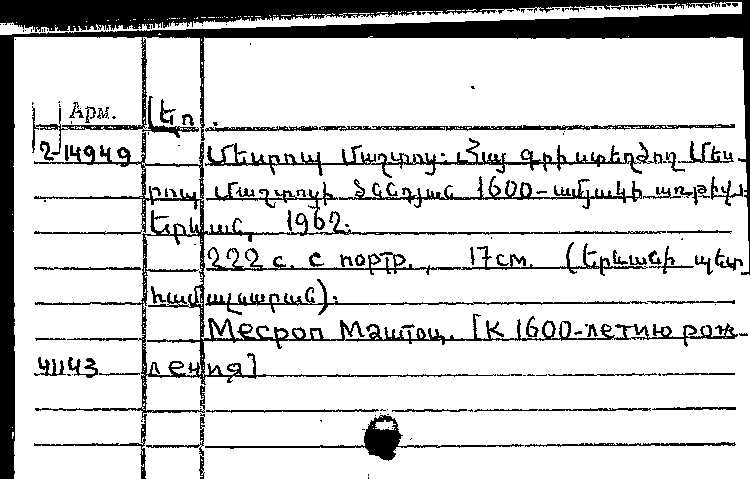 Арм. Լեո.
2-14949 Մեսրոպ Մաշտոց: Հայ գրի ստեղծող Մես-
րոպ Մաշտոցի ծննդյան 1600-ամյակի առթիվ:
Երևան, 1962.
222 с. с портр., 17 см. (Երևանի պետ.
համալսարան):
Месроп Маштоц. [К 1600-летию рож-
41143 дения]